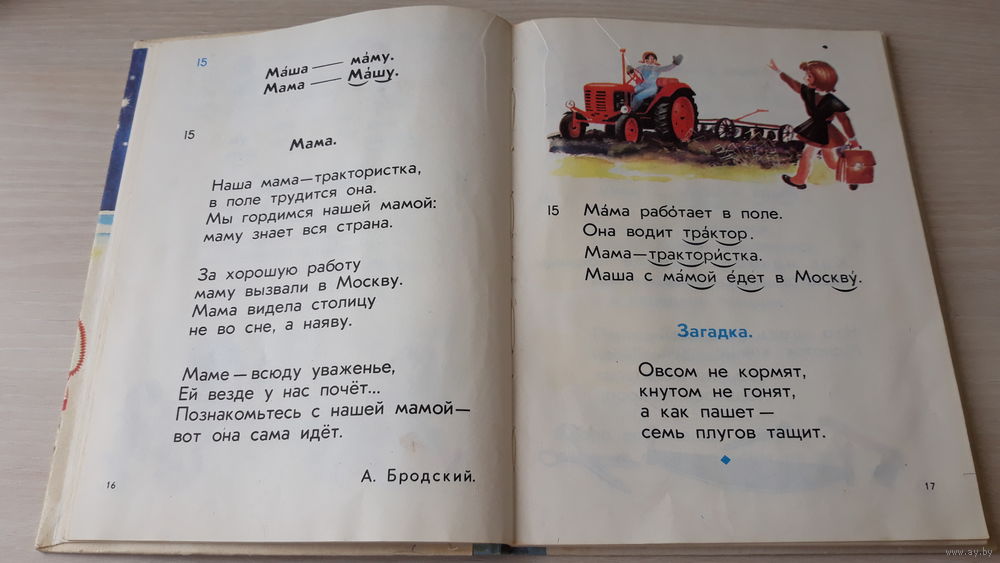 15
Ма́ша — ма́му.
Мама — Ма́шу.
15
Мама.
Наша мама—трактористка,
в поле трудится она.
Мы гордимся нашей мамой:
маму знает вся страна.
За хорошую работу
маму вызвали в Москву.
Мама видела столицу
не во сне, а наяву.
Маме—всюду уваженье,
Ей везде у нас почёт...
Познакомьтесь с нашей мамой—
вот она сама идёт.
А. Бродский.
16
15
Ма́ма рабо́тает в поле.
Она водит тра́ктор.
Мама—трактори́стка.
Маша с ма́мой е́дет в Москву́.
Загадка.
Овсом не кормят,
кнутом не гонят,
а как пашет—
семь плугов тащит.
17
www.ay.by